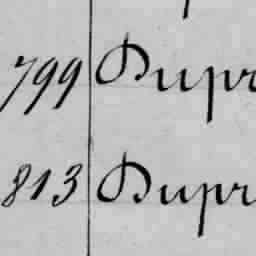 799 Dupr
813 Dupr